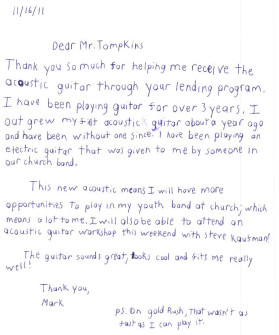 11/16/11
Dear Mr. Tompkins
Thank you so much for helping me receive the
acoustic guitar through your lending program.
I have been playing guitar for over 3 years. I
out grew my first acoustic guitar about a year ago
and have been without one since. I have been playing an
electric guitar that was given to me by someone in
our church band.
This new acoustic means I will have more
opportunities to play in my youth band at church; which
means a lot to me. I will also be able to attend an
acoustic guitar workshop this weekend with Steve Kaufman!
The guitar sounds great, looks cool and fits me really
well!
Thank you,
Mark
P.S. On gold Rush, That wasn't as
fast as I can play it.